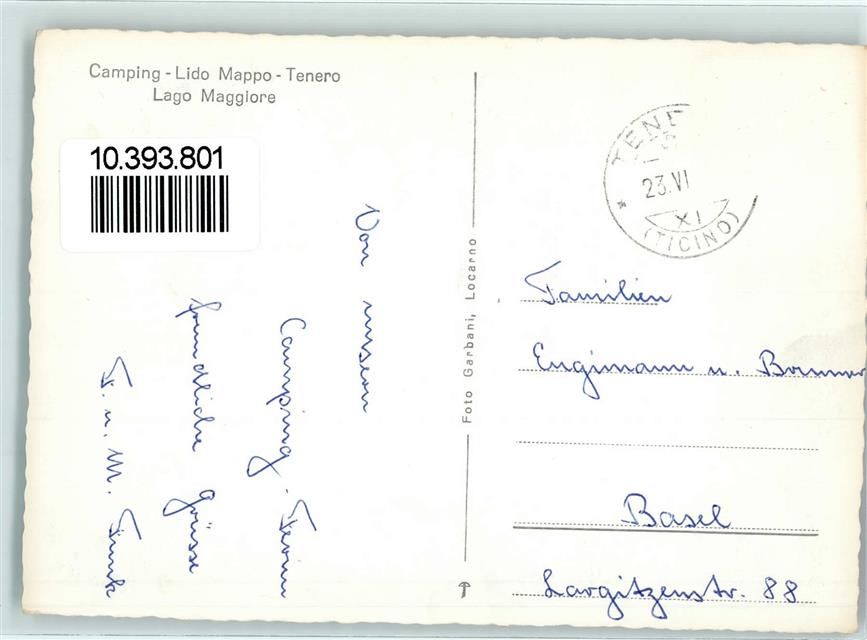 Camping - Lido Mappo - Tenero
Lago Maggiore
10.393.801
Von unseren
Camping-Ferien
freundliche Grüsse
F. u. M. Funk
Foto Garbani, Locarno
TENE
23.VI
XI
(TICINO)
Familien
Engimann u.
Basel
Largitzenstr. 88